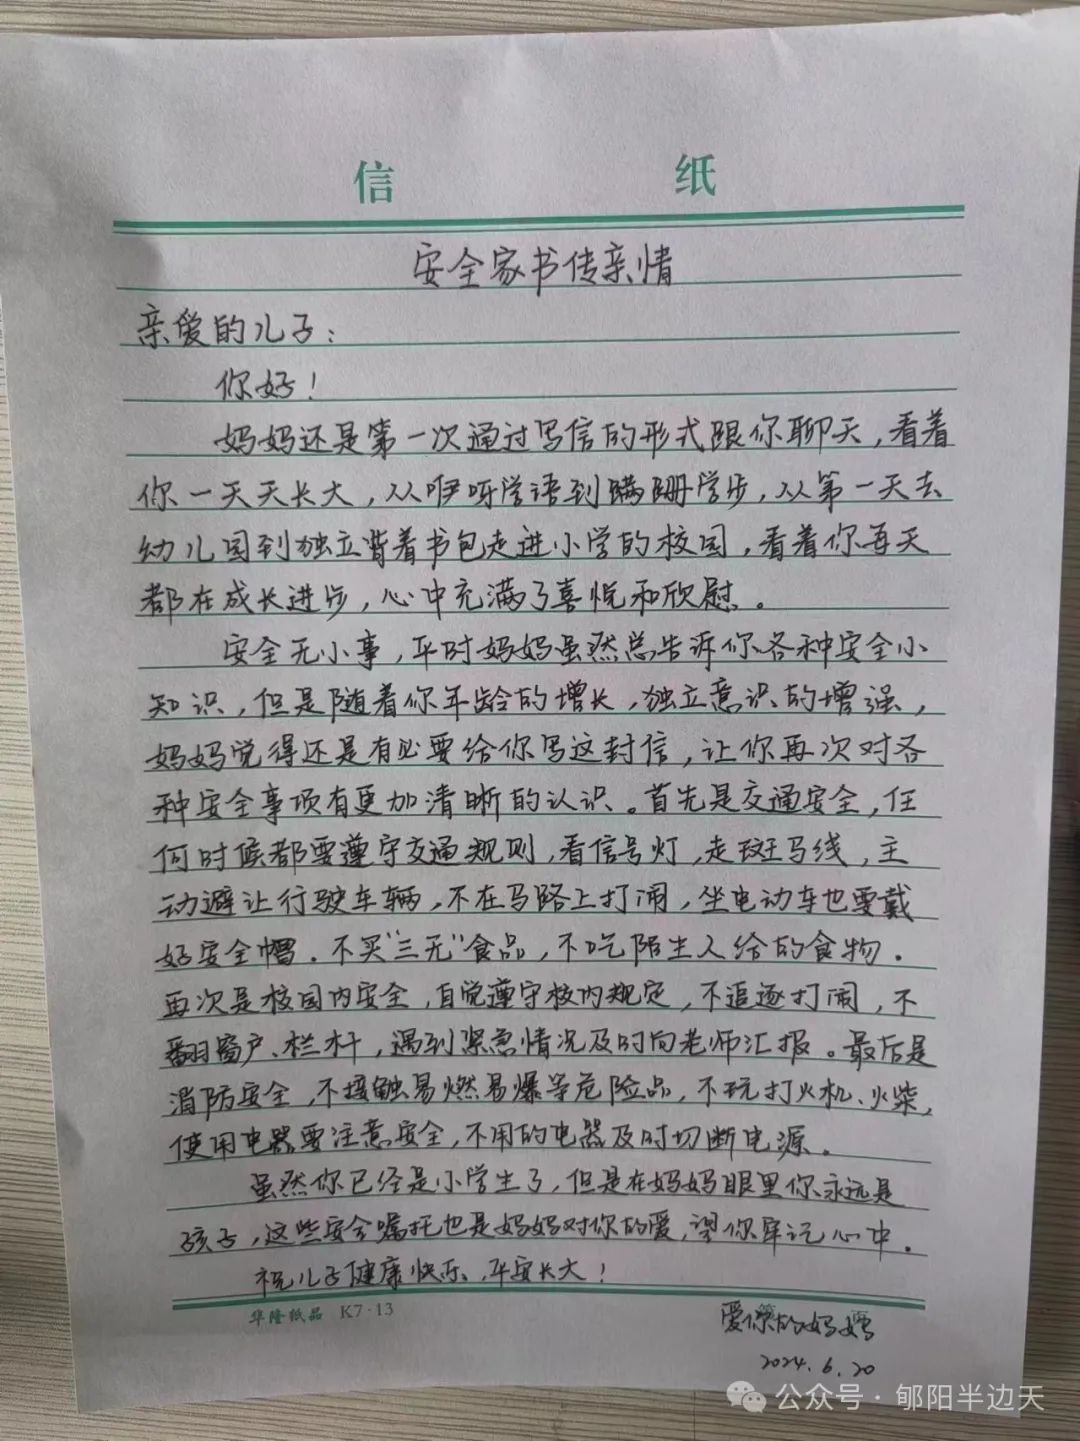 信 纸
安全家书传亲情
亲爱的儿子：
你好！
妈妈还是第一次通过写信的形式跟你聊天，看着
你一天天长大，从咿呀学语到蹒跚学步，从第一天去
幼儿园到独立背着书包走进小学的校园，看着你每天
都在成长进步，心中充满了喜悦和欣慰。
安全无小事，平时妈妈虽然总告诉你各种安全小
知识，但是随着你年龄的增长，独立意识的增强，
妈妈觉得还是有必要给你写这封信，让你再次对各
种安全事项有更加清晰的认识。首先是交通安全，任
何时候都要遵守交通规则，看信号灯，走斑马线，主
动避让行驶车辆，不在马路上打闹，坐电动车也要戴
好安全帽。不买“三无”食品，不吃陌生人给的食物。
再次是校园内安全，自觉遵守校内规定，不追逐打闹，不
翻窗户、栏杆，遇到紧急情况及时向老师汇报。最后是
消防安全，不接触易燃易爆等危险品，不玩打火机、火柴，
使用电器要注意安全，不用的电器及时切断电源。
虽然你已经是小学生了，但是在妈妈眼里你永远是
孩子，这些安全嘱托也是妈妈对你的爱，望你牢记心中。
祝儿子健康快乐，平安长大！
华隆纸品 K7·13
爱你的妈妈
2024.6.20
公众号·郇阳半边天